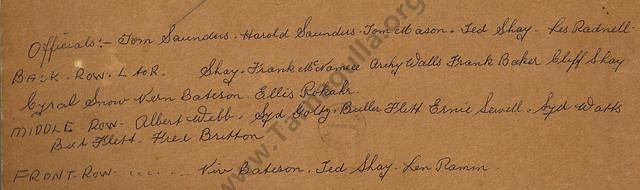 Officials:- Tom Saunders. Harold Saunders. Tom Mason. Ted Shay. Les Radnell.
BACK. ROW. L to R. Shay. Frank McNamee Archy Walls Frank Baker Cliff Shay
Cyral Snow Vern Bateson. Ellis Pokahr.
MIDDLE ROW. Albert Webb. Syd Goltz. Butler Flett Ernie Sewell. Syd Watts
Bat Flett. Free Britton
FRONT ROW. ...... Viv Bateson. Ted Shay. Len Ramm.